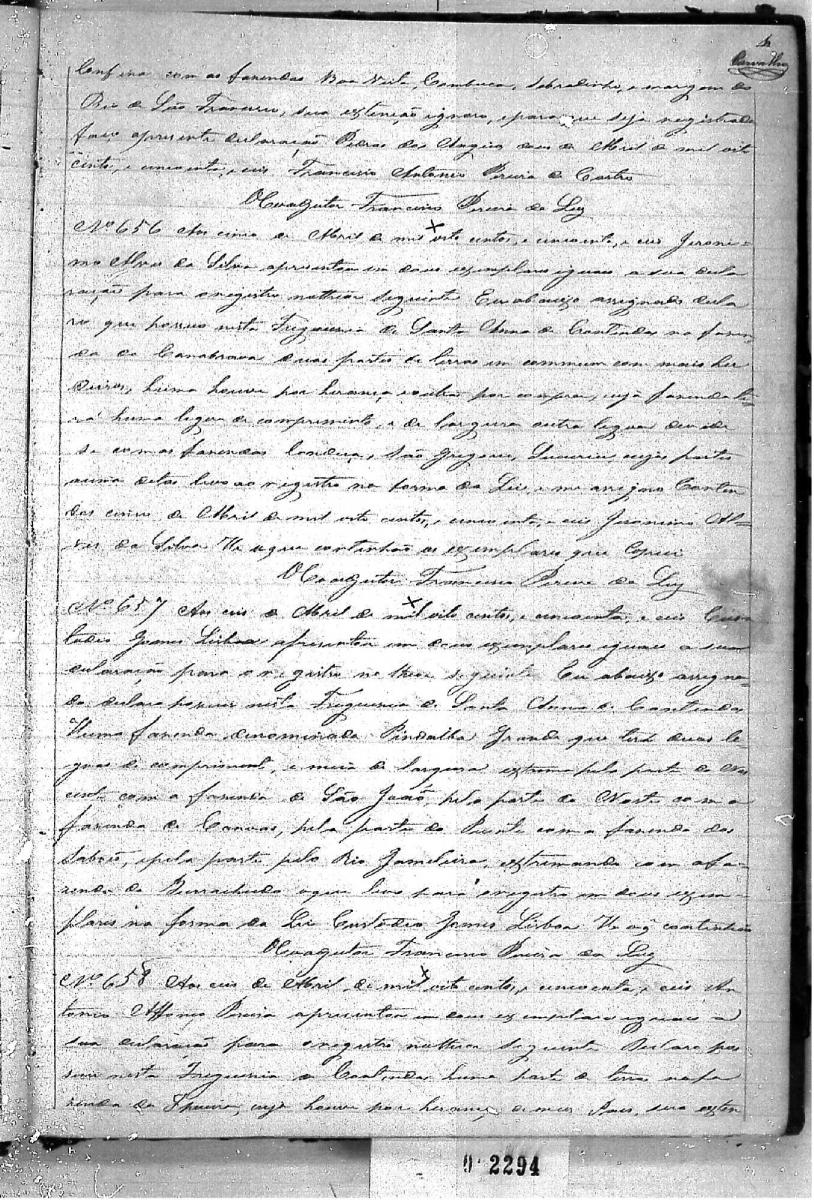 4
Carvalho
Confina com as fazendas Boa Vista, Cambuca, Sobradinho, e margem do
Rio de São Francisco, sua extenção ignoro, e para que seja registrada
faço apresente declaração Pedras dos Angicos dous de Abril de mil oito
centos, e cincoenta, e seis Francisco Antonio Pereira de Castro
O Coadjutor Francisco Pereira da Luz
Nº 656 Aos cinco de Abril de mil oito centos, e cincoenta, e seis Jeroni-
mo Alves da Silva apresentou em dous exemplares iguaes a sua decla
ração para o registro no theor seguinte Eu abaixo assignado decla
ro que possuo nesta Freguezia de Santa Anna de Contendas na fazen-
da da Canabrava duas partes de terras em commum com mais her
deiros, huma houve por herança e outra por compra, cuja fazenda te-
rá huma legua de comprimento, e de largura outra legua devide
se com as fazendas São Gregorio, cujas partes
acima ditas levo ao registro na forma da Lei, e me assigno Conten
das cinco de Abril de mil oito centos, e cincoenta, e seis Jeronimo Al-
ves da Silva He o que continhão os exemplares que Copiei
O Coadjutor Francisco Pereira da Luz
Nº 657 Aos seis de Abril de mil oito centos, e cincoenta, e seis Cus
todio Gomes Lisboa apresentou em dous exemplares iguaes a sua
declaração para o registro no theor seguinte Eu abaixo assigna-
do declaro possuir nesta Freguezia de Santa Anna de Contendas
Huma fazenda denominada Pindaiba Grande que terá duas le
guas de comprimento, e meia de largura extrema pela parte do Nas
cente com a fazenda de São João, pela parte do Norte com a
fazenda de Canoas, pela parte do Poente com a fazenda dos
e pela parte pelo Rio Gameleira, extremando com a fa-
zenda do Burrachudo o que levo para o registro em dous exem-
plares na forma da Lei Custodio Gomes Lisboa He o q continhão
O Coadjutor Francisco Pereira da Luz
Nº 658 Aos seis de Abril de mil oito centos, e cincoenta, e seis An
tonio Affonço Pereira apresentou em dous exemplares iguaes a
sua declaração para o registro no theor seguinte Declaro pos
suir nesta Freguezia de Contendas huma parte de terras na fa
zenda da cuja houve por herança de meus Pais, sua exten
0. 2294